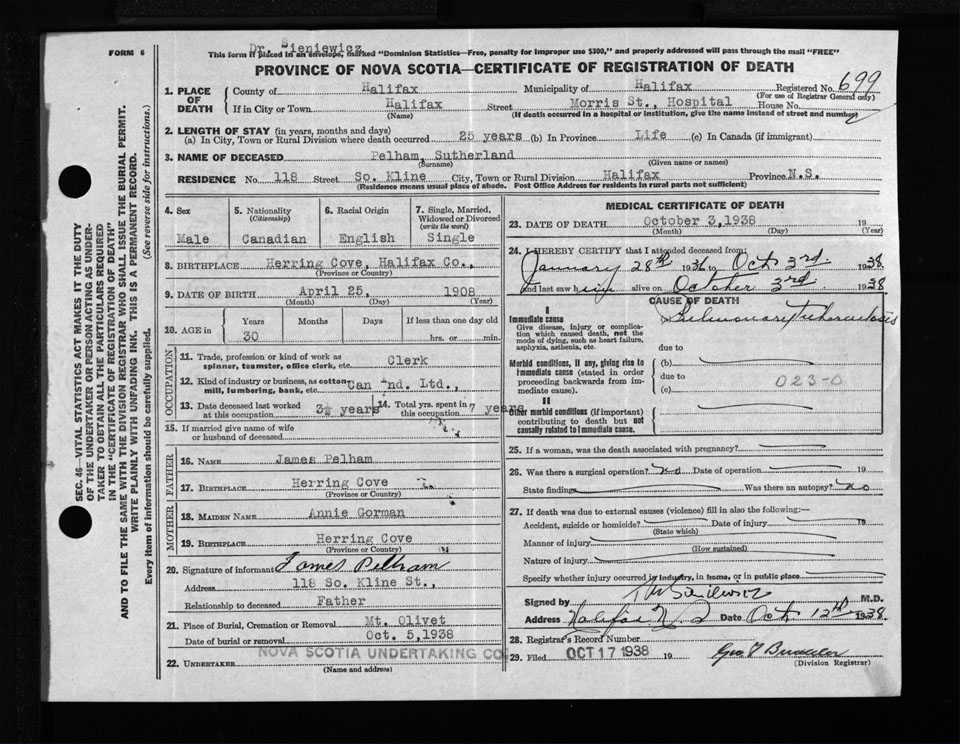 FORM 6
Dr. Sieniewicz
This form if placed in an envelope, marked "Dominion Statistics—Free, penalty for improper use $300," and properly addressed will pass through the mail "FREE"
PROVINCE OF NOVA SCOTIA—CERTIFICATE OF REGISTRATION OF DEATH
699
1. PLACE OF DEATH County of Halifax Municipality of Halifax Registered No.
(For use of Registrar General only)
If in City or Town Halifax Street Morris St., Hospital House No.
(Name) (If death occurred in a hospital or institution, give the name instead of street and number)
2. LENGTH OF STAY (in years, months and days)
(a) In City, Town or Rural Division where death occurred 25 years (b) In Province Life (c) In Canada (if immigrant)
3. NAME OF DECEASED Pelham, Sutherland
(Surname) (Given name or names)
RESIDENCE No. 118 Street So. Kline City, Town or Rural Division Halifax Province N.S.
(Residence means usual place of abode. Post Office Address for residents in rural parts not sufficient)
4. Sex Male
5. Nationality (Citizenship) Canadian
6. Racial Origin English
7. Single, Married, Widowed or Divorced (write the word) Single
8. BIRTHPLACE Herring Cove, Halifax Co.,
(Province or Country)
9. DATE OF BIRTH April 25, 1908
(Month) (Day) (Year)
10. AGE in Years Months Days If less than one day old
30 hrs. or min.
OCCUPATION
11. Trade, profession or kind of work as Clerk
spinner, teamster, office clerk, etc.
12. Kind of industry or business, as cotton-
mill, lumbering, bank, etc. Can Ind. Ltd.,
13. Date deceased last worked at this occupation 3½ years
14. Total yrs. spent in this occupation 7 years
15. If married give name of wife
or husband of deceased
FATHER
16. NAME James Pelham
17. BIRTHPLACE Herring Cove
(Province or Country)
MOTHER
18. MAIDEN NAME Annie Gorman
19. BIRTHPLACE Herring Cove
(Province or Country)
20. Signature of informant James Pelham
Address 118 So. Kline St.,
Relationship to deceased Father
21. Place of Burial, Cremation or Removal Mt. Olivet
Date of burial or removal Oct. 5,1938
22. UNDERTAKER NOVA SCOTIA UNDERTAKING CO.
(Name and address)
MEDICAL CERTIFICATE OF DEATH
23. DATE OF DEATH October 3,1938 19
(Month) (Day) (Year)
24. I HEREBY CERTIFY that I attended deceased from:
January 28th 1936 to Oct 3rd 1938
and last saw him alive on October 3rd 1938
CAUSE OF DEATH
I
Immediate cause
Give disease, injury or complication which caused death, not the mode of dying, such as heart failure, asphyxia, asthenia, etc.
Pulmonary Tuberculosis
due to
Morbid conditions, if any, giving rise to immediate cause (stated in order proceeding backwards from immediate cause).
(b)
due to
(c)
023-0
II
Other morbid conditions (if important) contributing to death but not causally related to immediate cause.
25. If a woman, was the death associated with pregnancy?
26. Was there a surgical operation? no Date of operation 19
State findings Was there an autopsy? no
27. If death was due to external causes (violence) fill in also the following:—
Accident, suicide or homicide? Date of injury 19
(State which)
Manner of injury
(How sustained)
Nature of injury
Specify whether injury occurred in industry, in home, or in public place
Signed by Sieniewicz M.D.
Address Halifax N.S Date Oct 12th 1938
28. Registrar's Record Number
29. Filed OCT 17 1938 19
(Division Registrar)
SEC. 46—VITAL STATISTICS ACT MAKES IT THE DUTY
OF THE UNDERTAKER OR PERSON ACTING AS UNDER-
TAKER TO OBTAIN ALL THE PARTICULARS REQUIRED
IN THE "CERTIFICATE OF REGISTRATION OF DEATH"
AND TO FILE THE SAME WITH THE DIVISION REGISTRAR WHO SHALL ISSUE THE BURIAL PERMIT.
WRITE PLAINLY WITH UNFADING INK. THIS IS A PERMANENT RECORD.
Every item of information should be carefully supplied. (See reverse side for instructions.)